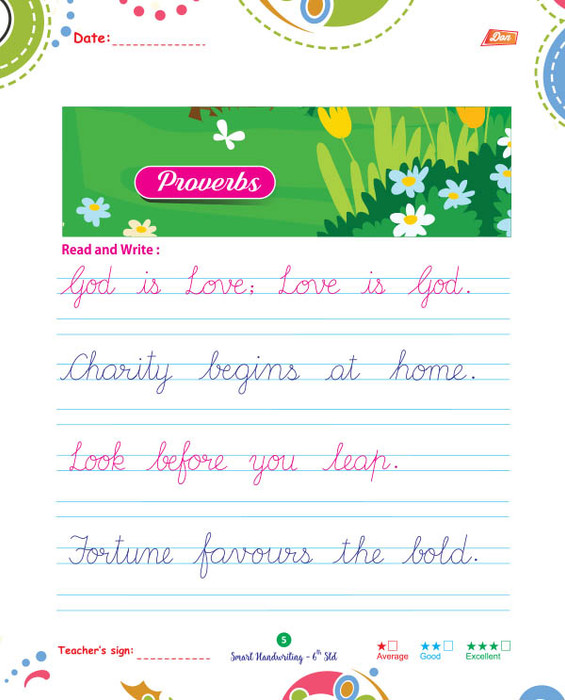 Date:
Don
Proverbs
Read and Write :
God is Love; Love is God.
Charity begins at home.
Look before you leap.
Fortune favours the bold.
Teacher's sign:
5
Smart Handwriting - 6th Std
Average Good Excellent